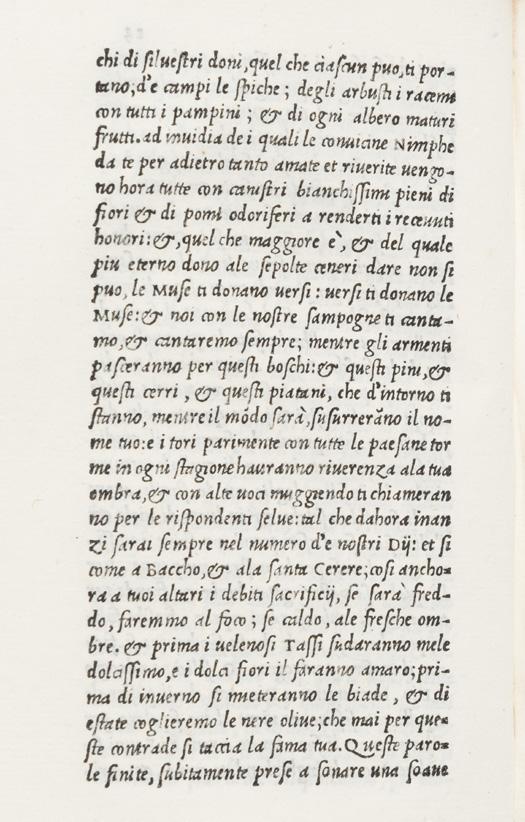 chi di silvestri doni, quel che ciascun puo, ti por-
tano; d'e campi le spiche; degli arbusti i racemi
con tutti i pampini; & di ogni albero maturi
frutti. ad invidia de i quali le convicine Nimphe
da te per adietro tanto amate et riverite vengo-
no hora tutte con canistri bianchissimi pieni di
fiori & di pomi odoriferi a renderti i recevuti
honori: &, quel che maggiore è, & del quale
piu eterno dono ale sepolte ceneri dare non si
puo, le Muse ti donano versi: versi ti donano le
Muse: & noi con le nostre sampogne ti canta-
mo, & cantaremo sempre; mentre gli armenti
pasceranno per questi boschi: & questi pini, &
questi cerri, & questi piatani, che d'intorno ti
stanno, mentre il mõdo sarà, susurrerãno il no-
me tuo: e i tori parimente con tutte le paesane tor
me in ogni stagione hauranno riverenza ala tua
ombra, & con alte voci muggiendo ti chiameran
no per le rispondenti selve: tal che dahora inan
zi sarai sempre nel numero d'e nostri Dij: et si
come a Baccho, & ala santa Cerere; cosi ancho-
ra a tuoi altari i debiti sacrificij, se sarà fred-
do, faremmo al foco; se caldo, ale fresche om-
bre. & prima i velenosi Tassi sudaranno mele
dolcissimo, e i dolci fiori il faranno amaro; pri-
ma di inverno si meteranno le biade, & di
estate coglieremo le nere olive; che mai per que-
ste contrade si taccia la fama tua. Queste paro-
le finite, subitamente prese a sonare una soave